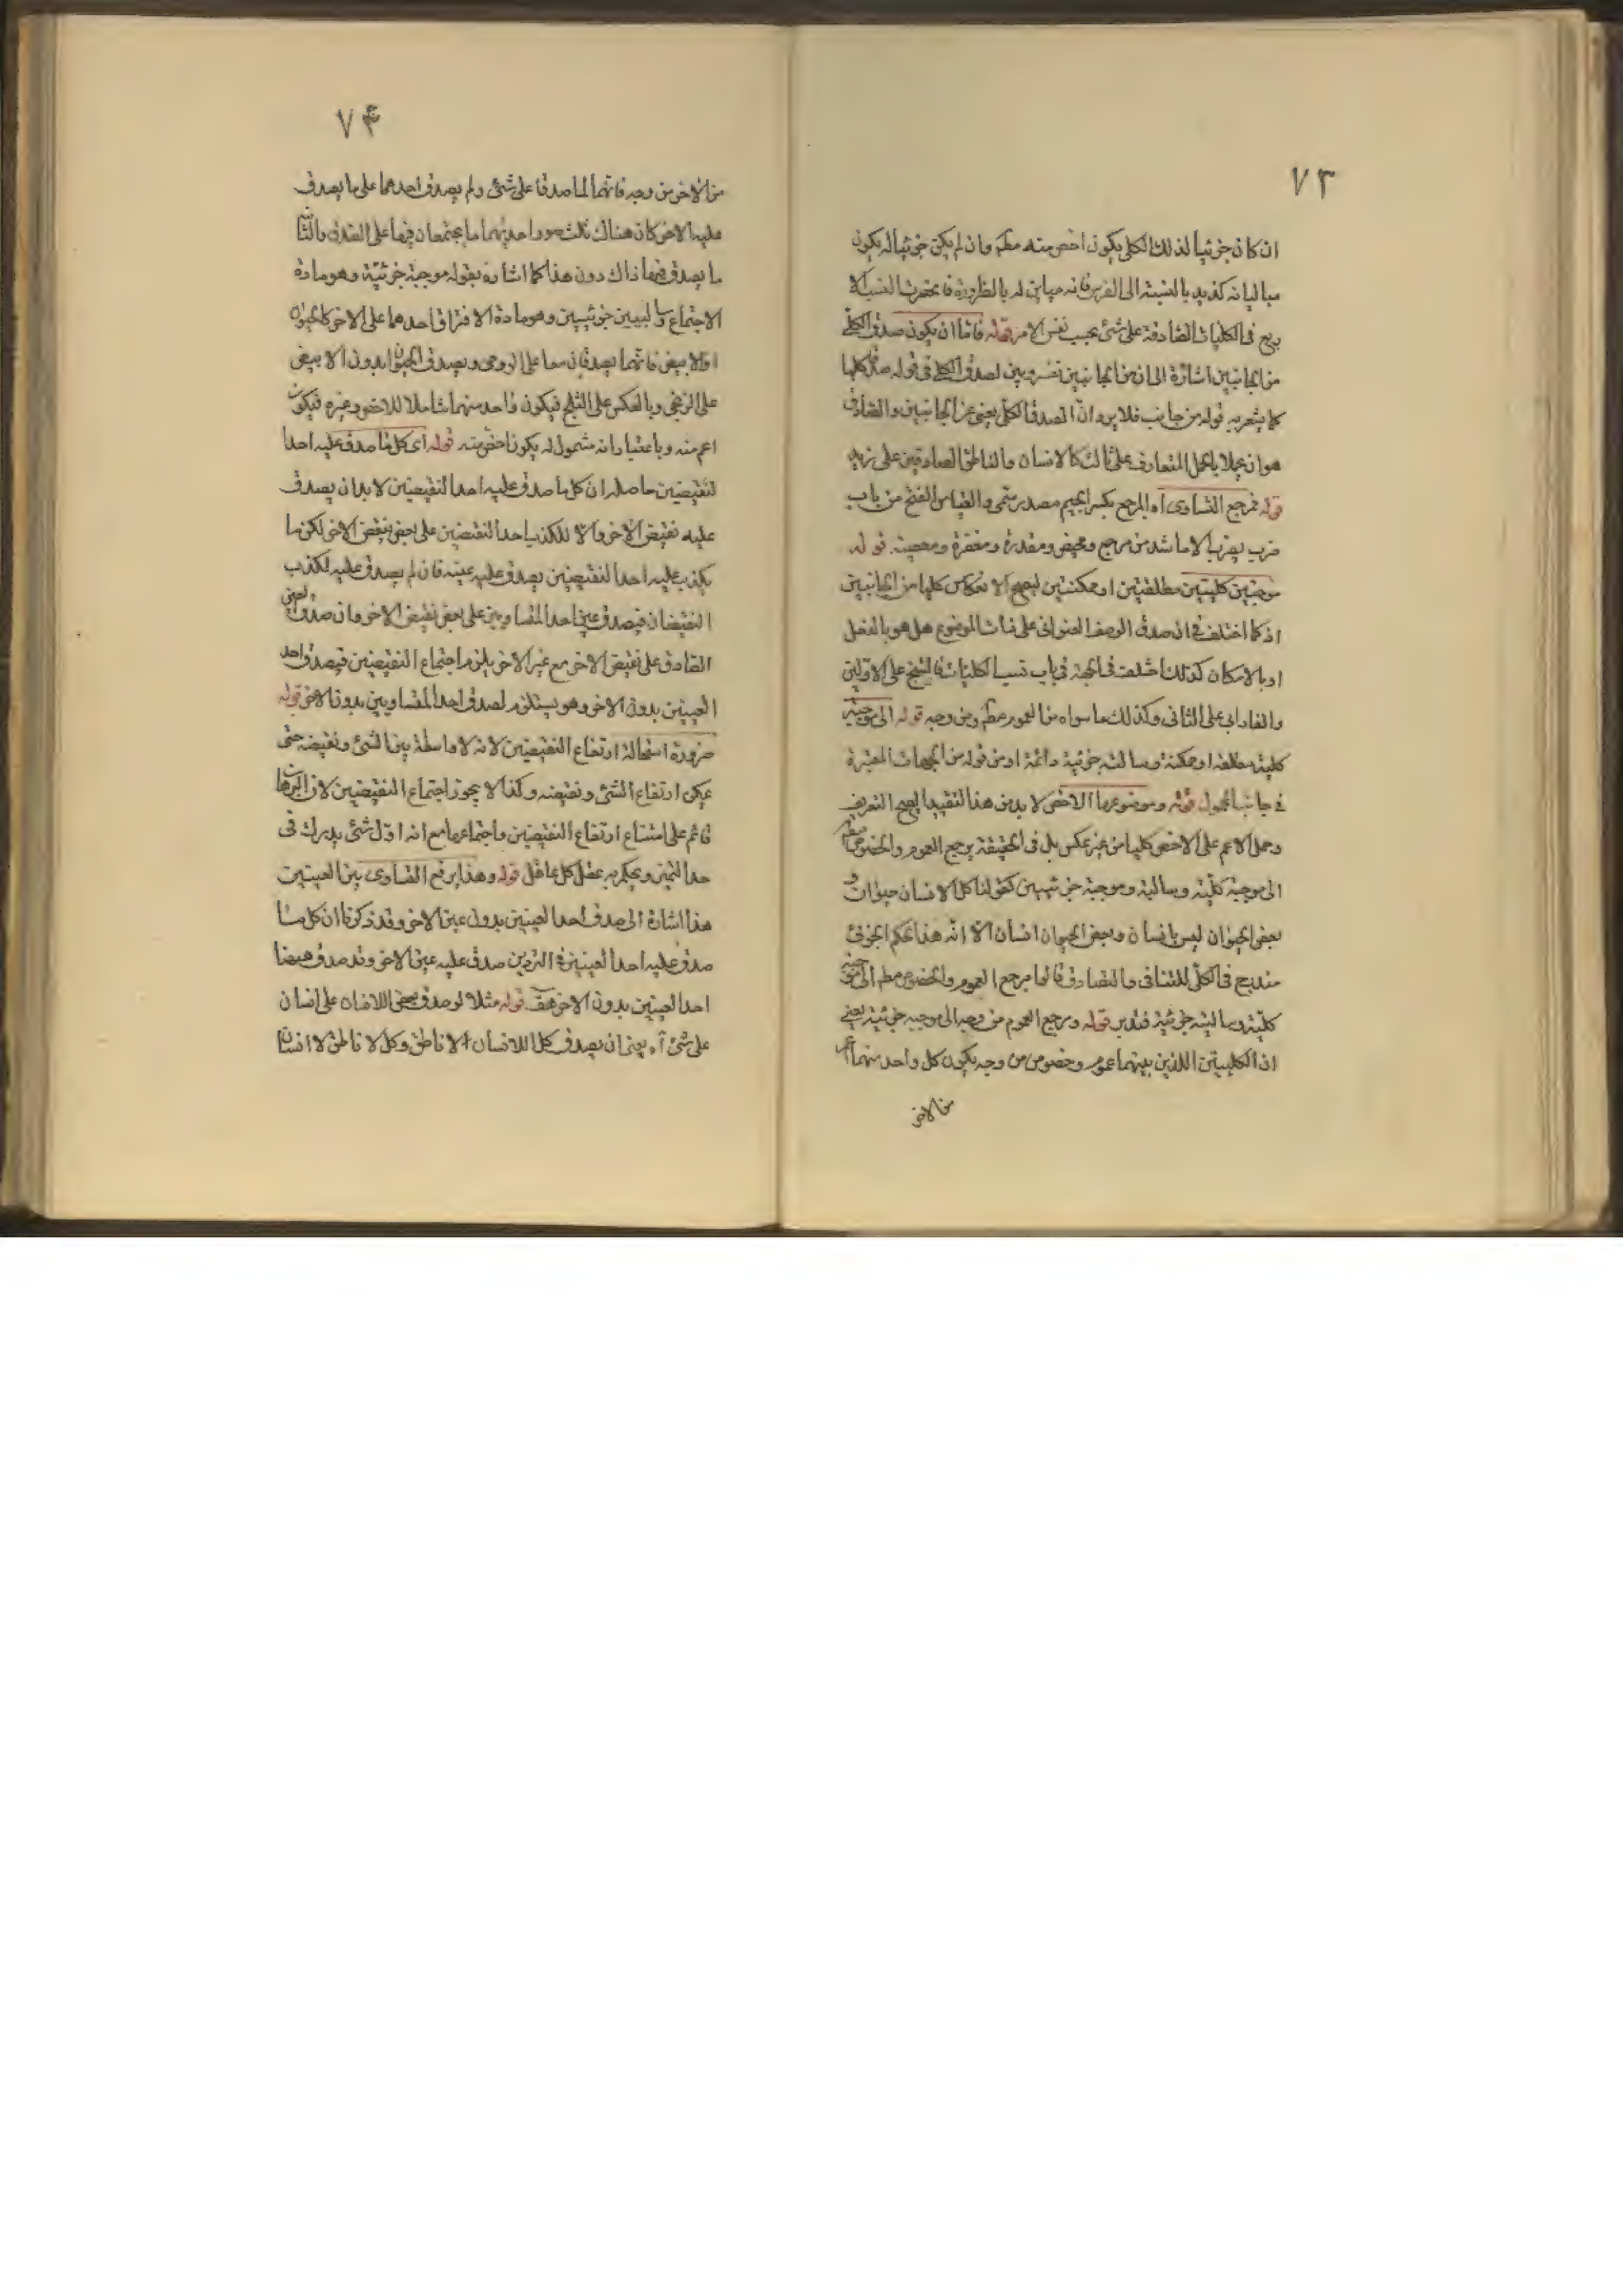 ٧٣
ان كان جزئيا لذلك الكلى يكون اخص منه مطم وان لم يكن جزئيا له يكون
مباينا له كزيد بالنسبة الى الفرس فانه مباين له بالضرورة فانحصرت النسب الا
ربع فى الكليات الصادقة على شئ بحسب نفس الامر قوله فاما ان يكون صدق الكلى
من الجانبين اشارة الى ان من الجانبين لصدق الكلى فى قوله كليا
كما يشعر به قوله من جانب فلا يرد انّ الصدق الكلّى يغنى عن الجانبين والتصادق
هو ان يحملا بالحمل المتعارف على ثالث كالانسان والناطق الصادقين على زيد
قوله فمرجع التساوى اه المرجع بكسر الجيم مصدر ميمى والقياس الفتح من باب
ضرب يضرب الا ما شد من مرجع ومحيض ومقدرة ومغفرة ومعصية قوله
موجبتين كليتين مطلقتين او ممكنتين ليصح الانعكاس كليا من الجانبين
اذ كما اختلف فى ان صدق الوصف العنوانى على ذات الموضوع هل هو بالفعل
او بالامكان كذلك اختلف فى الجهة فى باب نسب الكليات فالشيخ على الاولين
والفارابى على الثانى وكذلك ما سواه من العموم مطم ومن وجه قوله الى موجبة
كلية مطلقة او ممكنة وسالبة جزئية دائمة او من قوله من الجهات المعتبرة
فى جانب المحمول قوله وموضوعها الاخص لا بد من هذا التقييد ليصح التعريف
وحمل الاعم على الاخص كليا من غير عكس بل فى الحقيقة يرجع العموم والخصوص مطم
الى موجبة كلّية وسالبة وموجبة جزئيتين كقولنا كل الانسان حيوان و
بعض الحيوان ليس بانسان وبعض الحيوان انسان الا انّه هذا الحكم الجزئى
مندرج فى الكلّى للتنافى والتصادق قالوا مرجع العموم والخصوص مطم الى موجبة
كلية وسالبة جزئية فتدبر قوله ومرجع العموم من وجه الى موجبة جزئية يعنى
ان الكليتين اللذين بينهما عموم وخصوص من وجه يكون كل واحد منهما اعم
من الاخر
٧۴
من الاخر من وجه فانهما لما صدقا على شئ ولم يصدق احدهما على ما يصدق
عليه الاخر كان هناك ثلث صور احديهما ما يجتمعان فيها على الصدق والثانية
ما يصدق فيها ذاك دون هذا كما اشار به بقوله موجبة جزئيّة وهو مادة
الاجتماع وسالبيين جزئيتين وهو مادة الافتراق احدهما على الاخر كالحيوان
والابيض فانهما يصدقان معا على الرومى ويصدق الحيوان بدون الابيض
على الزنجى وبالعكس على الثلج فيكون واحد منهما شاملا للاخر وغيره فيكون
اعم منه وباعتبار انه مشمول له يكون اخص منه قوله اى كل ما صدق عليه احدا
لنقيضين حاصله ان كل ما صدق عليه احد النقيضين لا بد ان يصدق
عليه نقيض الاخر والا لكذب احد النقيضين على بعض نقيض الاخر لكن ما
يكذب عليه احد النقيضين يصدق عليه عينه فان لم يصدق عليه لكذب
النقيضان فيصدق عين احد المتساويين على بعض نقيض الاخر وان صدق العين
الصادق على نقيض الاخر مع عين الاخر يلزم اجتماع النقيضين فيصدق احد
العينين بدون الاخر وهو يستلزم لصدق احد المتساويين بدون الاخر قوله
ضرورة استحالة ارتفاع النقيضين لانه لا واسطة بين الشئ ونقيضه حتى
يمكن ارتفاع الشئ ونقيضه وكذا لا يجوز اجتماع النقيضين لان البرهان
قائم على امتناع ارتفاع النقيضين واجتماعها مع انه اوّل شئ يدرك فى
حد التميز ويحكم به عقل كل عاقل قوله وهذا يرفع التساوى بين العينين
هذا اشارة الى صدق احد العينين بدون عين الاخر وقد ذكرنا ان كل ما
صدق عليه احد العينين صدق عليه عين الاخر وقد صدق هيهنا
احد العينين بدون الاخر هف قوله مثلا لو صدق بعض اللاانسان على انسان
على شئ آه يعنى ان يصدق كل اللاانسان الا ناطق وكل لا ناطق لا انسان